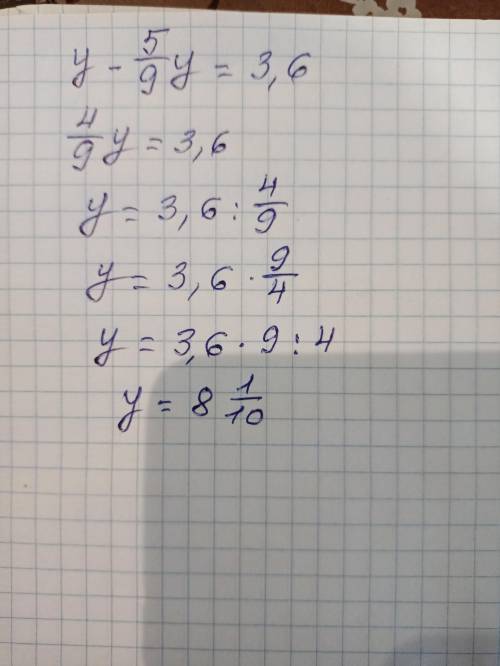 y - 5/9 y = 3,6
4/9 y = 3,6
y = 3,6 : 4/9
y = 3,6 · 9/4
y = 3,6 · 9 : 4
y = 8 1/10